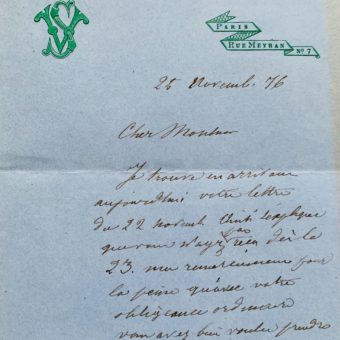 VS
PARIS
RUE MEYRAN
No 7
25 Novemb. 76
Cher Monsieur
Je trouve en arrivant
aujourd'hui votre lettre
du 22 novemb.
que vous n'ayez pas reçu dès le
23. mes remerciements pour
la peine qu'avec votre
obligeance ordinaire
vous avez bien voulu prendre